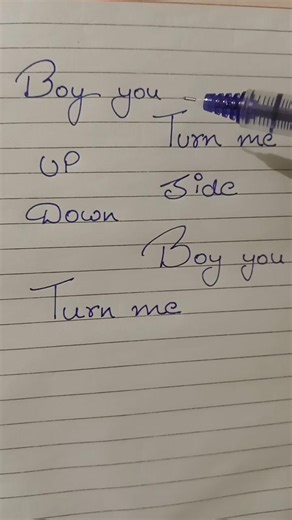 Boy you
Turn me
UP
Side
Down
Boy you
Turn me